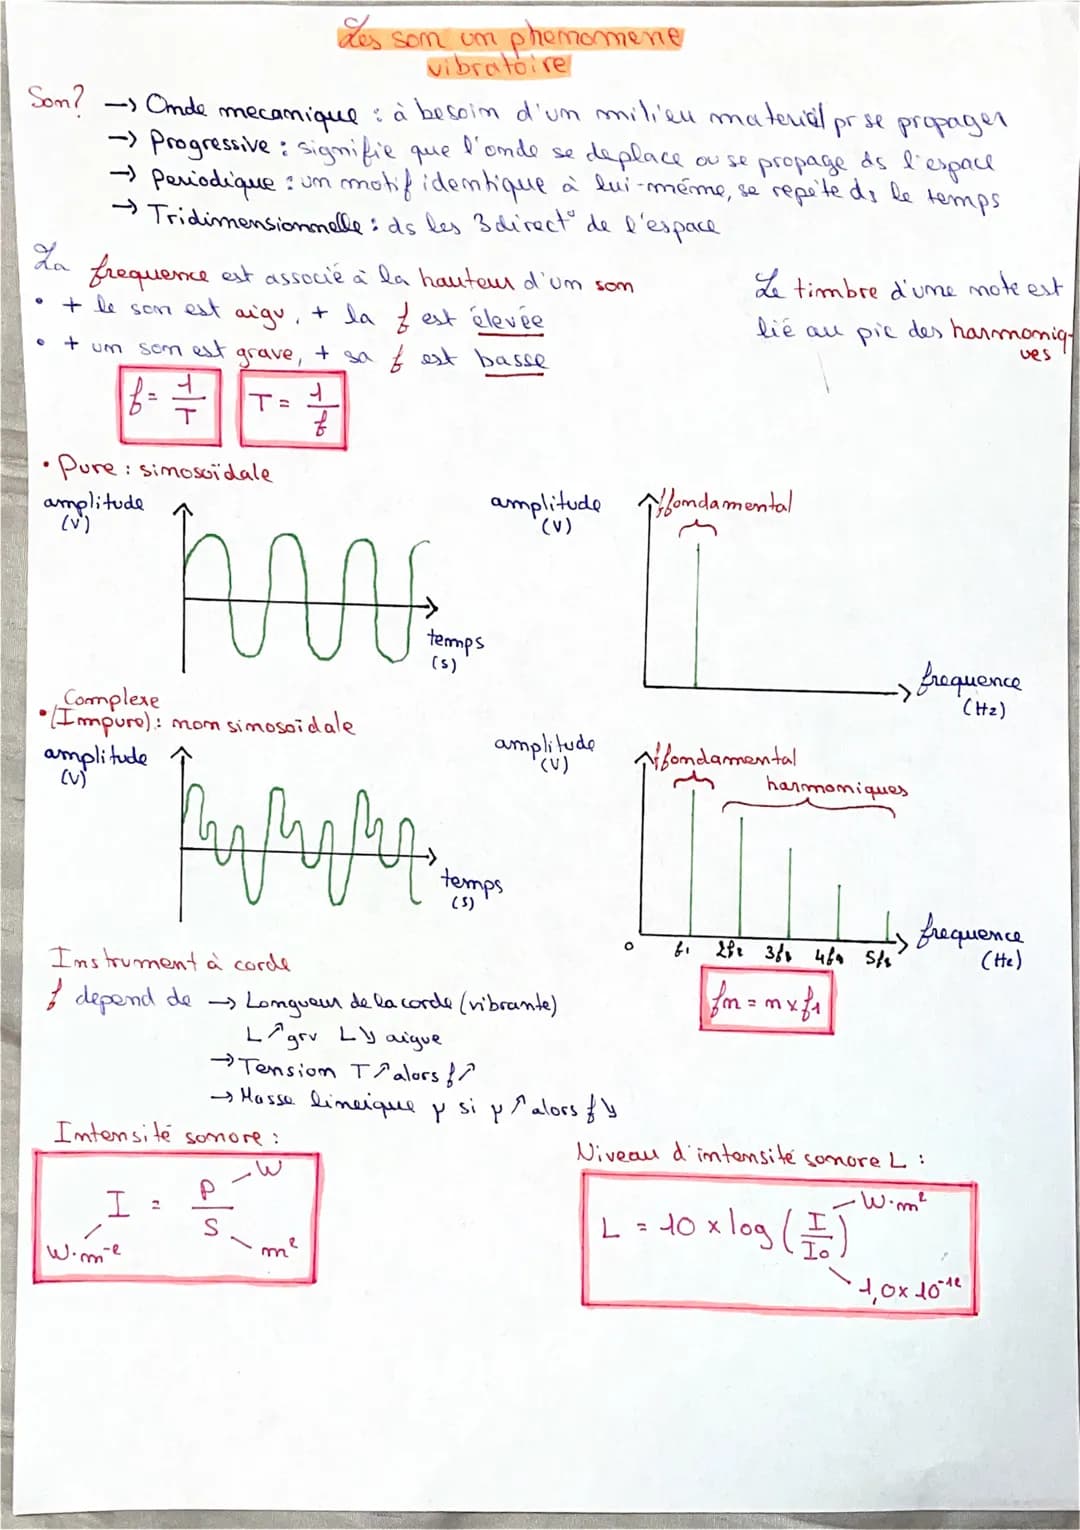 Les son un phenomene
vibratoire
Son? → Onde mecanique : à besoin d'un milieu materiel pr se propager
→ Progressive : signifie que l'onde se deplace ou se propage ds l'espace
→ Periodique : un motif identique à lui-même, se repète ds le temps
→ Tridimensionnelle : ds les 3 direct° de l'espace
La frequence est associé à la hauteur d'un son
• + le son est aigu, + la f est élevée
• + un son est grave, + sa f est basse
Le timbre d'une note est
lié au pic des harmoniq-
ues
f = 1/T
T = 1/f
• Pure : sinosoïdale
amplitude
(V)
temps
(s)
amplitude
(V)
fondamental
frequence
(Hz)
Complexe
• (Impure) : non sinosoïdale
amplitude
(V)
temps
(s)
amplitude
(V)
fondamental
harmoniques
0 f1 2f1 3f1 4f1 5f1
frequence
(Hz)
fn = n x f1
Instrument à corde
f depend de → Longueur de la corde (vibrante)
L↗ grv L↘ aigue
→ Tension T↗ alors f↗
→ Masse lineique μ si μ↗ alors f↘
Intensité sonore :
I = P/S
W
W·m⁻²
m²
Niveau d'intensité sonore L :
L = 10 x log (I/I0)
W·m²
1,0x10⁻¹²